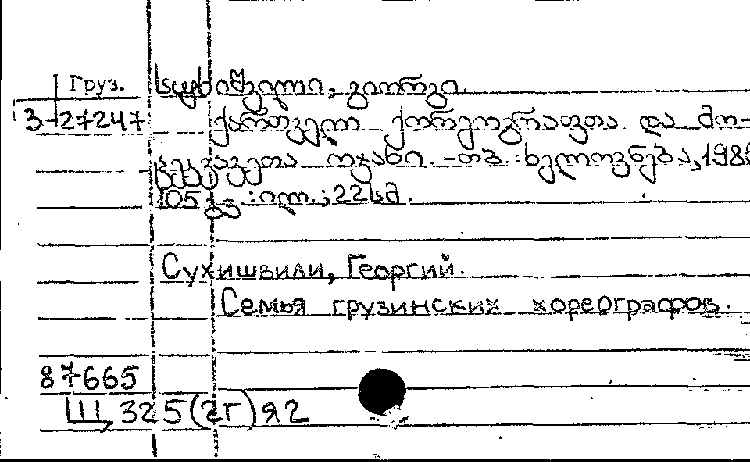 Груз. სუხიშვილი, გიორგი.
3-27247 ქართველი ქორეოგრაფთა და მო-
ცეკვავეთა ოჯახი. -თბ.: ხელოვნება, 198
105 გვ.: ილ.; 22 სმ.
Сухишвили, Георгий.
Семья грузинских хореографов.
87665
Щ 325(2Г)я2